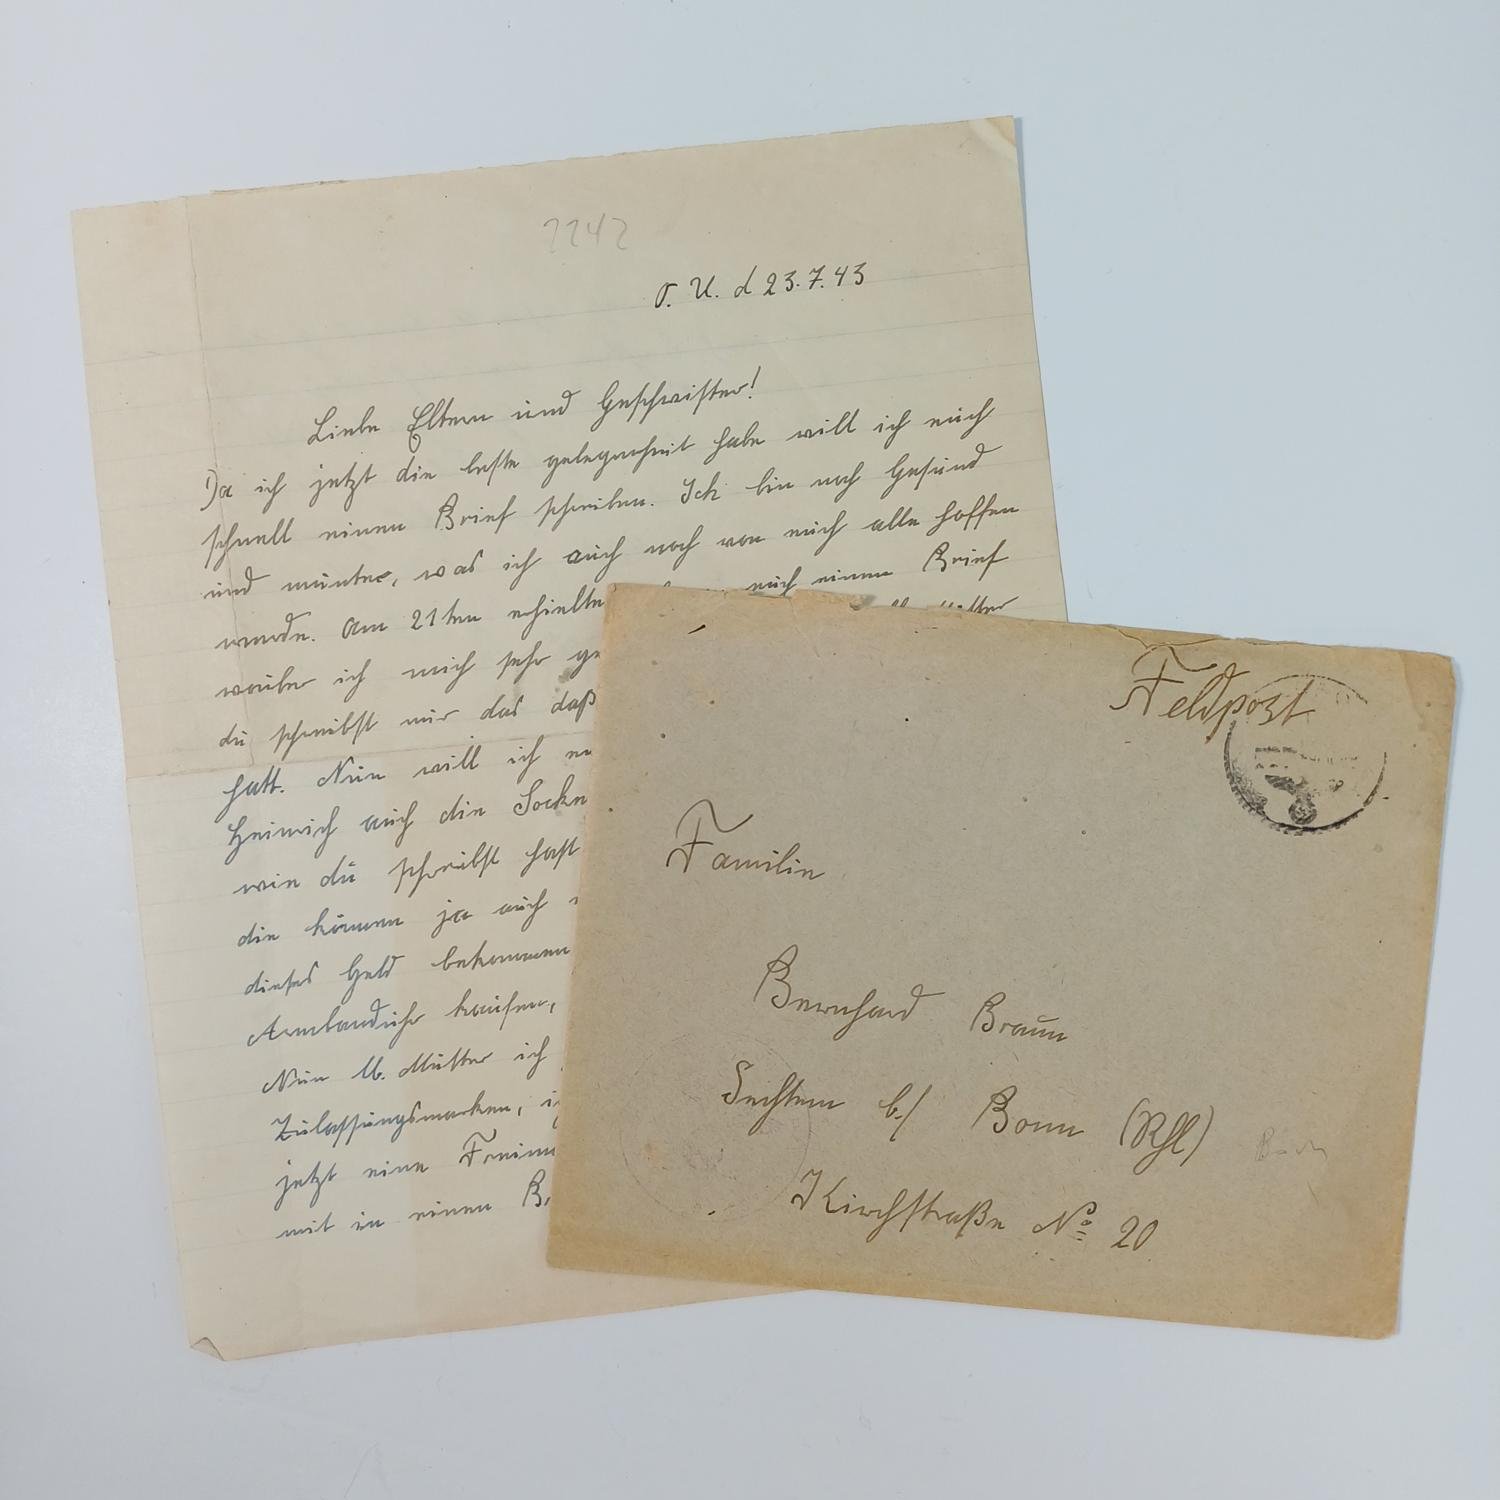 2242
O. U. d 23.7.43
Liebe Eltern und Geschwister!
Da ich jetzt die beste gelegenheit habe will ich euch
schnell einen Brief schreiben. Ich bin noch Gesund
und munter, was ich auch noch von euch alle hoffen
werde. Am 21ten erhielte euch einen Brief
worüber ich mich sehr
du schreibst mir das daß
hatt. Nun will ich
Heinrich auch die Socken
wie du schreibst hast
die können ja auch
dieses Geld bekommen
Armbanduhr kaufen,
Nun lb. Mutter ich
Zulassungsmarken,
jetzt eine
mit in einen
Feldpost
Familie
Bernhard Braun
Sechtem b./ Bonn (Rhl)
Kirchstraße No 20